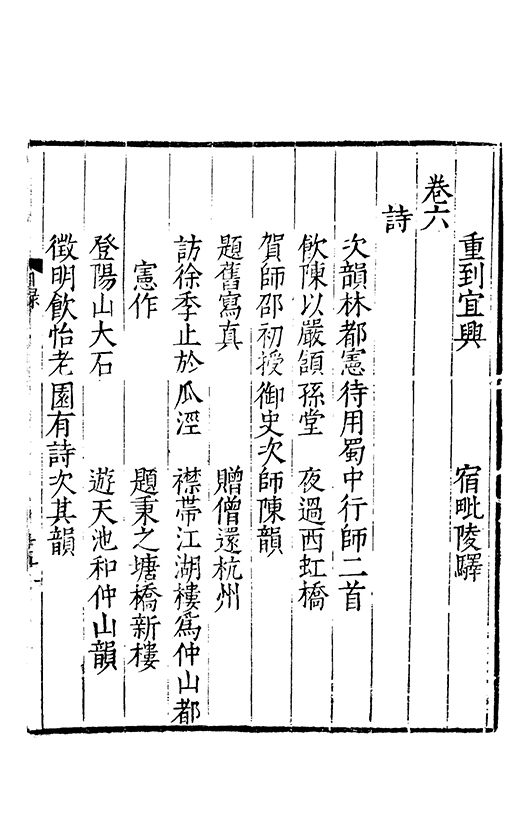 重到宜興　宿毗陵驛
卷六
詩
次韻林都憲待用蜀中行師二首
飲陳以嚴頷孫堂　夜過西虹橋
賀師邵初授御史次師陳韻
題舊寫真　贈僧還杭州
訪徐季止於瓜涇　襟帶江湖樓爲仲山都
憲作　題秉之塘橋新樓
登陽山大石　遊天池和仲山韻
徵明飲怡老園有詩次其韻